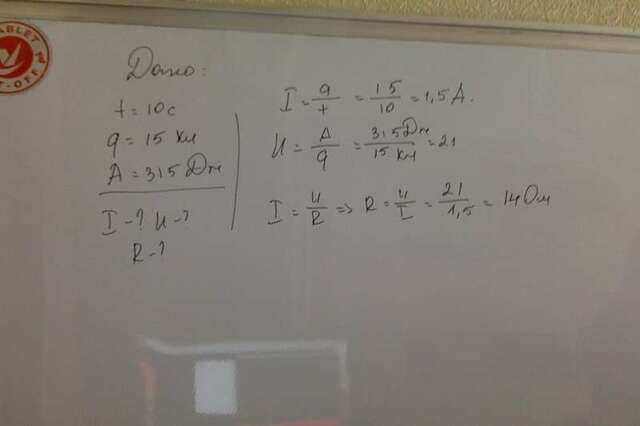 TABLET
T-OFF
Дано:
t = 10 с
q = 15 Кл
A = 315 Дж
I - ? U - ?
R - ?
I = q/t = 15/10 = 1,5 А.
U = A/q = 315 Дж/15 Кл = 21
I = U/R => R = U/I = 21/1,5 = 14 Ом